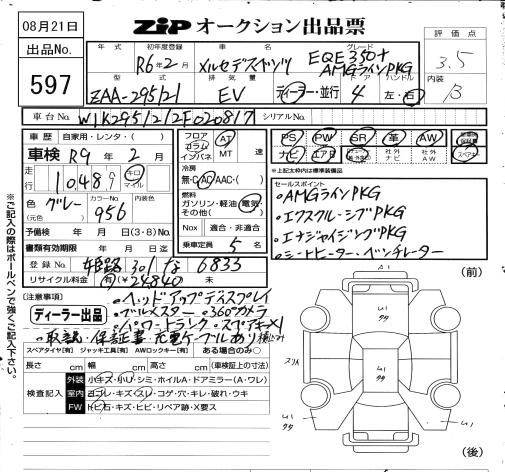 08月21日
ZIP オークション出品票
出品No.
597
年式 初年度登録 車名 グレード 評価点
R6年2月 メルセデスベンツ EQE350+ AMGラインPKG 3.5
型式 排気量 ドア ハンドル 内装
ZAA-295121 EV ディーラー・並行 4 左・右 B
車台No. W1K2951212F020817 シリアルNo.
車歴 自家用・レンタ・( )
フロア コラム インパネ AT MT 速
PS PW SR 革 AW
車検 R9年2月
ナビ エアB 社外ナビ 社外AW スペアキー
走行 10489 キロ マイル
冷房 無・C・AC・AAC・( )
※上記太枠は標準装備品
色 グレー カラーNo. 956 内装色
(元色)
燃料 ガソリン・軽油・電気・その他( )
セールスポイント
・AMGラインPKG
・エクスクルーシブPKG
・エナジャイジングPKG
・シートヒーター・ベンチレーター
予備検 年 月 日(3・8)No.
Nox 適合・非適合
書類有効期限 年 月 日迄
乗車定員 5名
登録No. 姫路 301 な 6833
リサイクル料金 (有) ¥24840 未
(前)
(注意事項)
・ヘッドアップディスプレイ
ディーラー出品
・ブルメスター ・360°カメラ
・パワートランク ・スペアキー×1
・取説・保証書・充電ケーブルあり
スペアタイヤ[有] ジャッキ工具[有] AWロックキー[有] ある場合のみ○
長さ cm 幅 cm 高さ cm (車検証上の寸法)
検査記入
外装 小キズ・小U・シミ・ホイルA・ドアミラー(A・ワレ)
室内 ヨゴレ・キズ・スレ・コゲ・穴・キレ・破れ・ウキ
FW トビ石・キズ・ヒビ・リペア跡・X要ス
(後)
※ご記入の際はボールペンで強くご記入下さい。